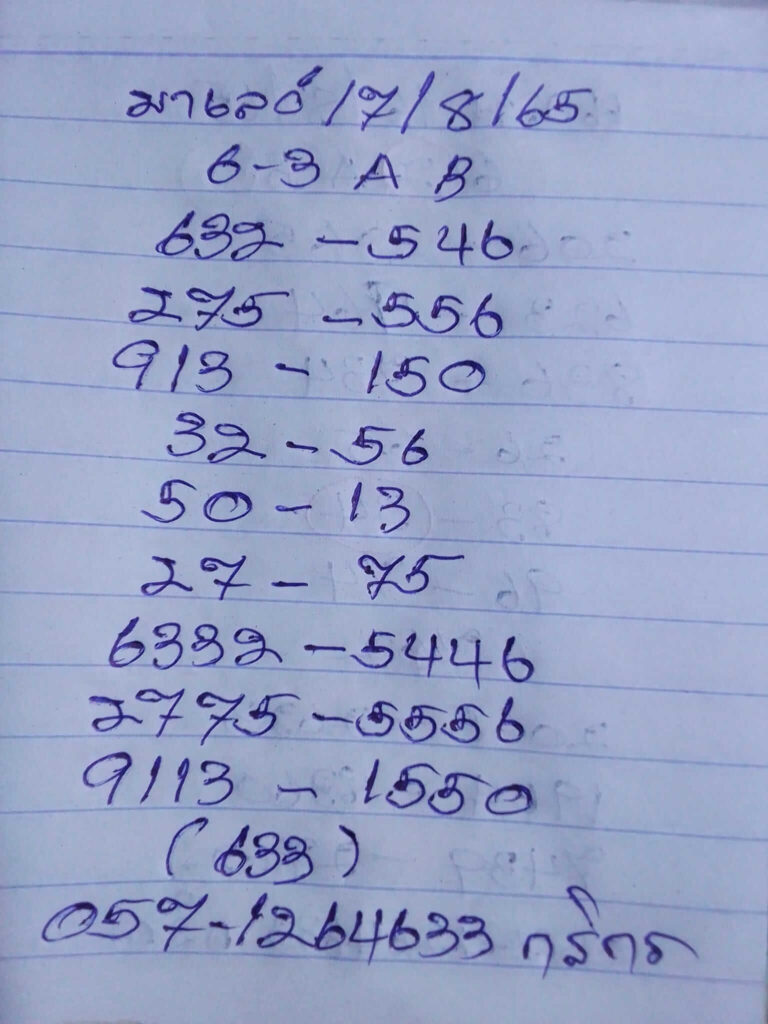 มาเลย์/7/8/65
6-3 A B
632 - 546
275 - 556
913 - 150
32 - 56
50 - 13
27 - 75
6332 - 5446
2775 - 5556
9113 - 1550
(633)
057-1264633